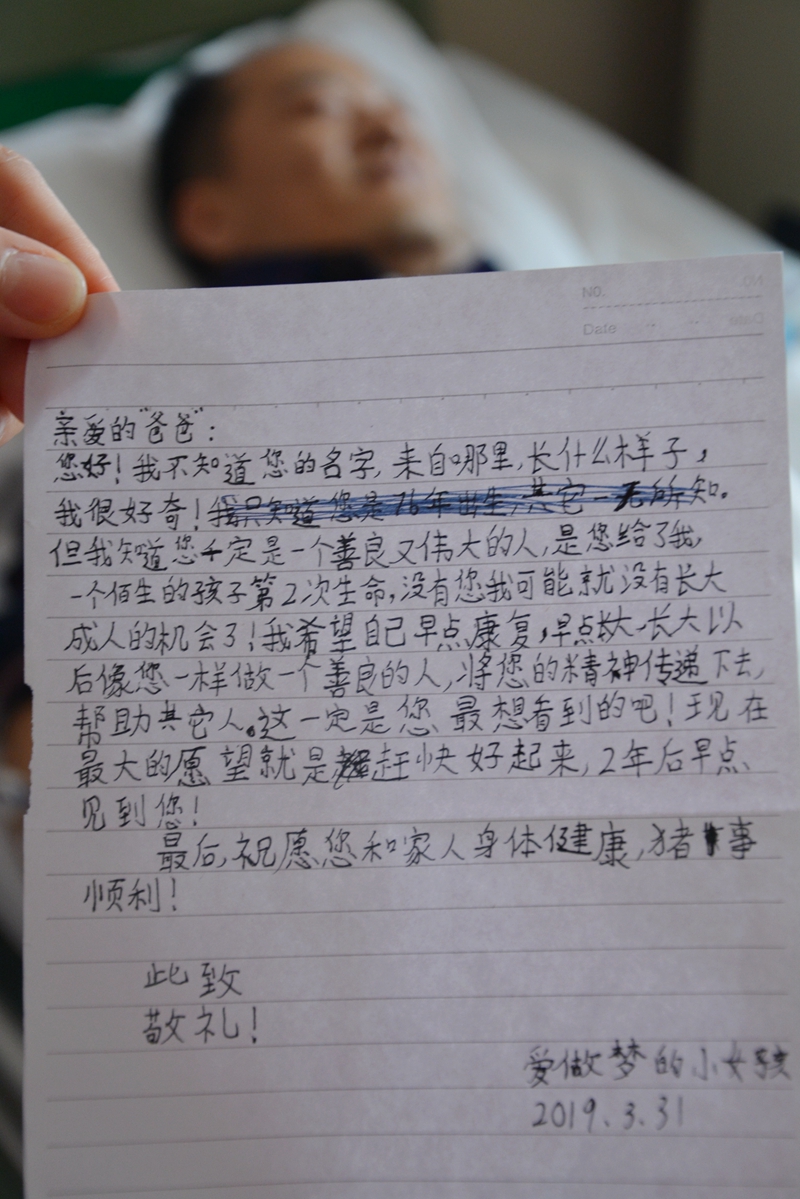 No.
Date
亲爱的"爸爸":
您好!我不知道您的名字,来自哪里,长什么样子,
我很好奇!我只知道您是76年出生,其它一无所知。
但我知道您一定是一个善良又伟大的人,是您给了我,
一个佰生的孩子第2次生命,没有您我可能就没有长大
成人的机会了!我希望自己早点康复,早点长大,长大以
后像您一样做一个善良的人,将您的精神传递下去,
帮助其它人。这一定是您最想看到的吧!现在
最大的愿望就是赶快好起来,2年后早点
见到您!
最后,祝愿您和家人身体健康,猪事
顺利!
此致
敬礼!
爱做梦的小女孩
2019.3.31